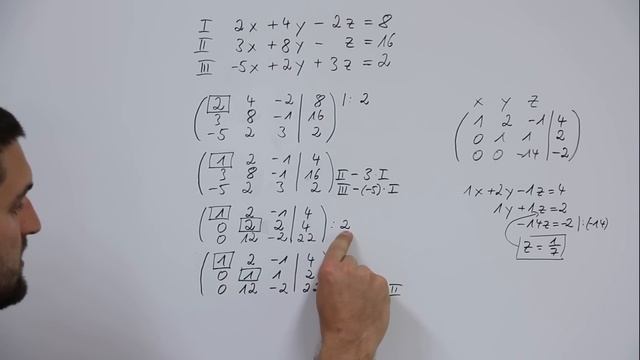 I 2x + 4y - 2z = 8
II 3x + 8y - z = 16
III -5x + 2y + 3z = 2
2 4 -2 | 8 |: 2
3 8 -1 | 16
-5 2 3 | 2
1 2 -1 | 4
3 8 -1 | 16 II - 3 · I
-5 2 3 | 2 III - (-5) · I
1 2 -1 | 4
0 2 2 | 4 : 2
0 12 -2 | 22
1 2 -1 | 4
0 1 1 | 2
0 12 -2 | 22 II
x y z
1 2 -1 | 4
0 1 1 | 2
0 0 -14 | -2
1x + 2y - 1z = 4
1y + 1z = 2
-14z = -2 |: (-14)
z = 1/7